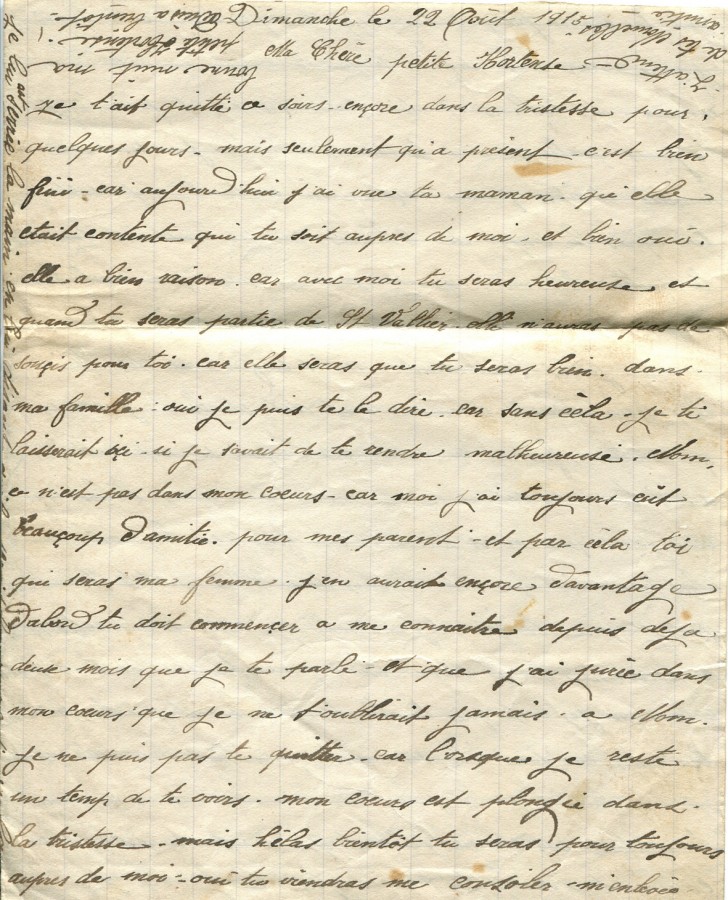 Dimanche le 22 Août 1915
Ma Chère petite Hortense
je t'ait quitté ce soirs - ençore dans la tristesse pour,
quelques jours - mais seulement qu'a present - c'est bien
fini - car aujourd'hui j'ai vue ta maman. qu'elle
etait contente qui tu soit aupres de moi, et bien oui.
elle a bien raison. car avec moi tu seras heureuse et
quand tu seras partie de St Vallier. elle n'auras pas de
souçis pour toi. car elle seras que tu seras bien. dans.
ma famille. oui je puis te le dire. car sans cèla. je te
laisserait içi - si je savait de te rendre malheureuse. Non,
ce n'est pas dans mon coeurs - car moi j'ai toujours eût
beauçoup d'amitié. pour mes parent - et par cèla toi
qui seras ma femme. j'en aurait ençore davantage
D'abord tu doit commençer a me connaitre depuis deja
deux mois que je te parle - et que j'ai jurée dans
mon coeurs que je ne t'oublirait jamais. a Non.
je ne puis pas te quitter. car lorsque je reste
un temp de te voirs. mon coeurs est plongée dans.
la tristesse. mais hélas bientôt tu seras pour toujours
aupres de moi - oui tu viendras me consoler
je lui ait serrée la main en
petite Hortense.
de ta